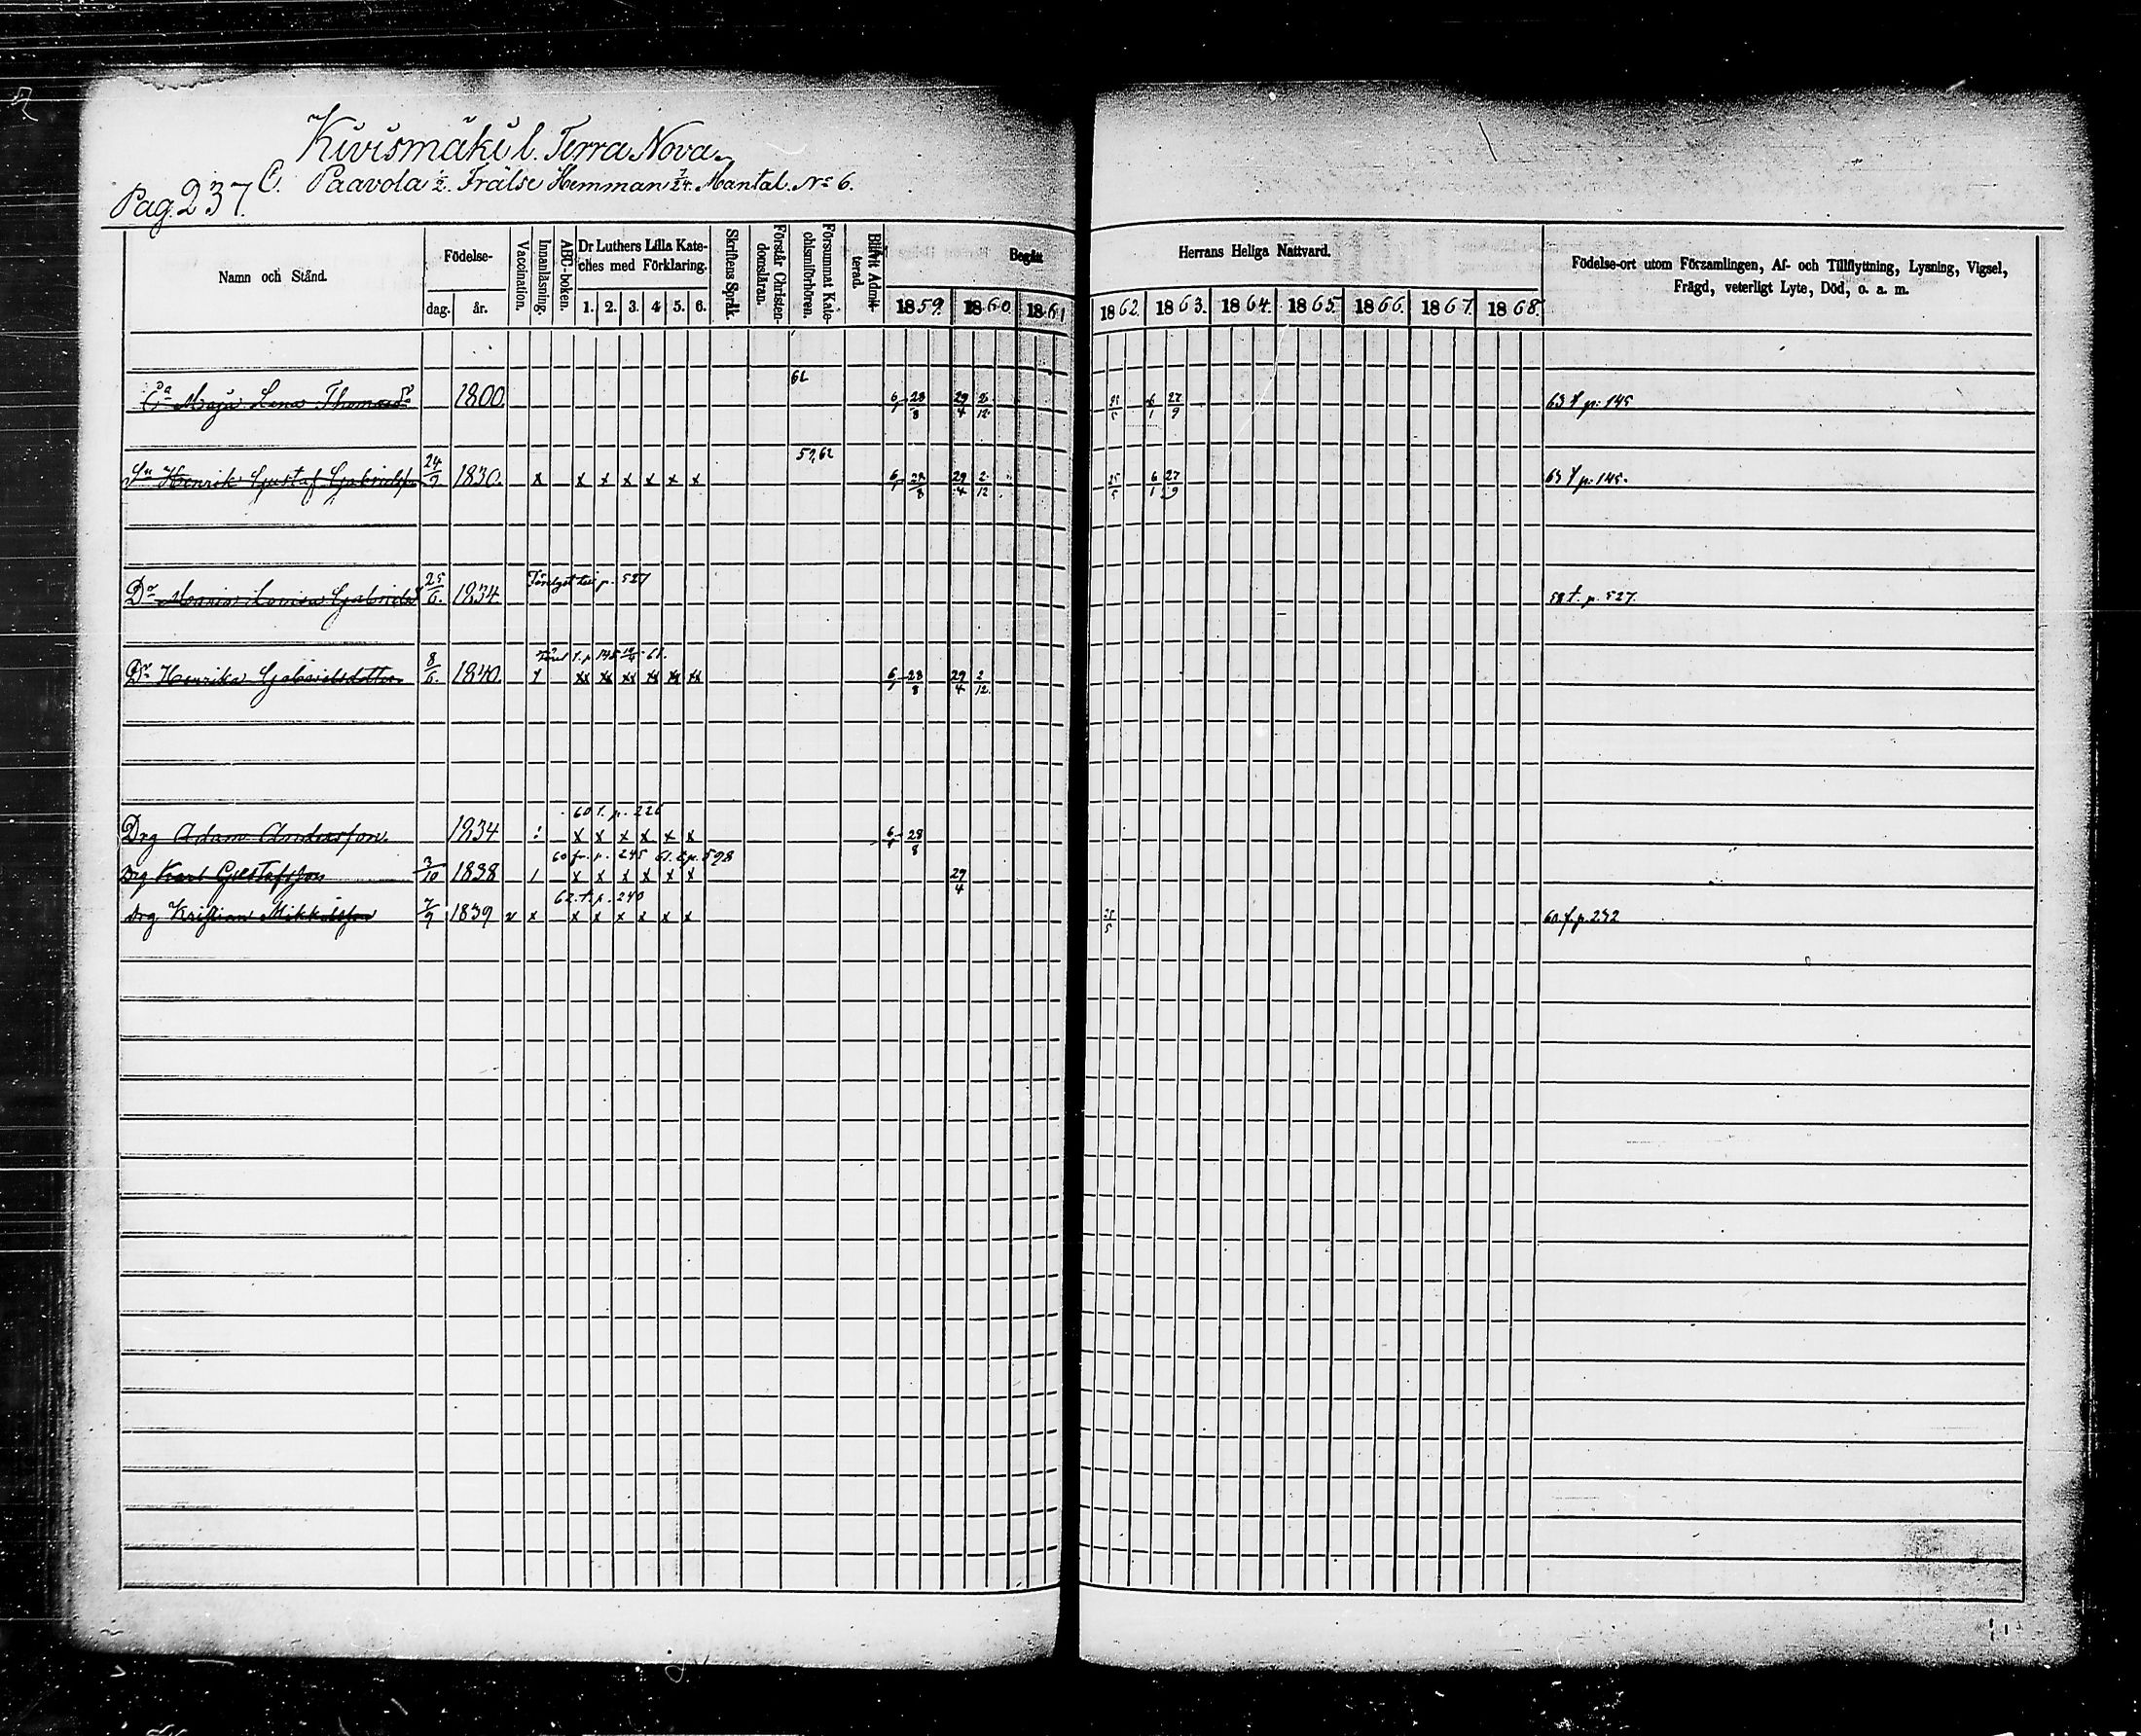 Kivismäki l. Terra Nova
O. Paavola ½ Frälse Hemman 7/24 Mantal. No 6.
Pag. 237.
Namn och Stånd.
Födelse-
dag. år.
Vaccination.
Innanläsning.
ABC-boken.
Dr Luthers Lilla Kate-
ches med Förklaring.
1. 2. 3. 4 5. 6.
Skriftens Språk.
Förstår Christen-
domsläran.
Försummat Kate-
chismiförhören.
Blifvit Admit-
terad.
Begått Herrans Heliga Nattvard.
1859. 1860 1861 1862. 1863. 1864. 1865. 1866. 1867. 1868.
Födelse-ort utom Församlingen, Af- och Tillflyttning, Lysning, Vigsel,
Frägd, veterligt Lyte, Död, o. a. m.
Maja Lena 1800. 28/8 29/4 6/1 27/9 63 p. 145
59,62
Henrik Gustaf 1830. x x x x x x x 28/8 29/4 2/12 25/5 6/1 27/9 63 p. 145.
p. 527
Dr Maria Lovisa 25/6. 1834 58 t. p. 527.
Dr Henrika Gabrielsdotter 8/6. 1840 xx xx xx xx xx xx 28/8 29/4 2/12.
60 t. p. 226
Drg Adam Andersson. 1834 x x x x x x 28/8
60 fr. p. 245 61. t p. 598
Drg Karl Gustafsson 3/10 1838 x x x x x x 29/4
62. t. p. 240
Drg Kristian Mikkolsson 7/9 1839 v x x x x x x x 25/5 60. f. p. 232